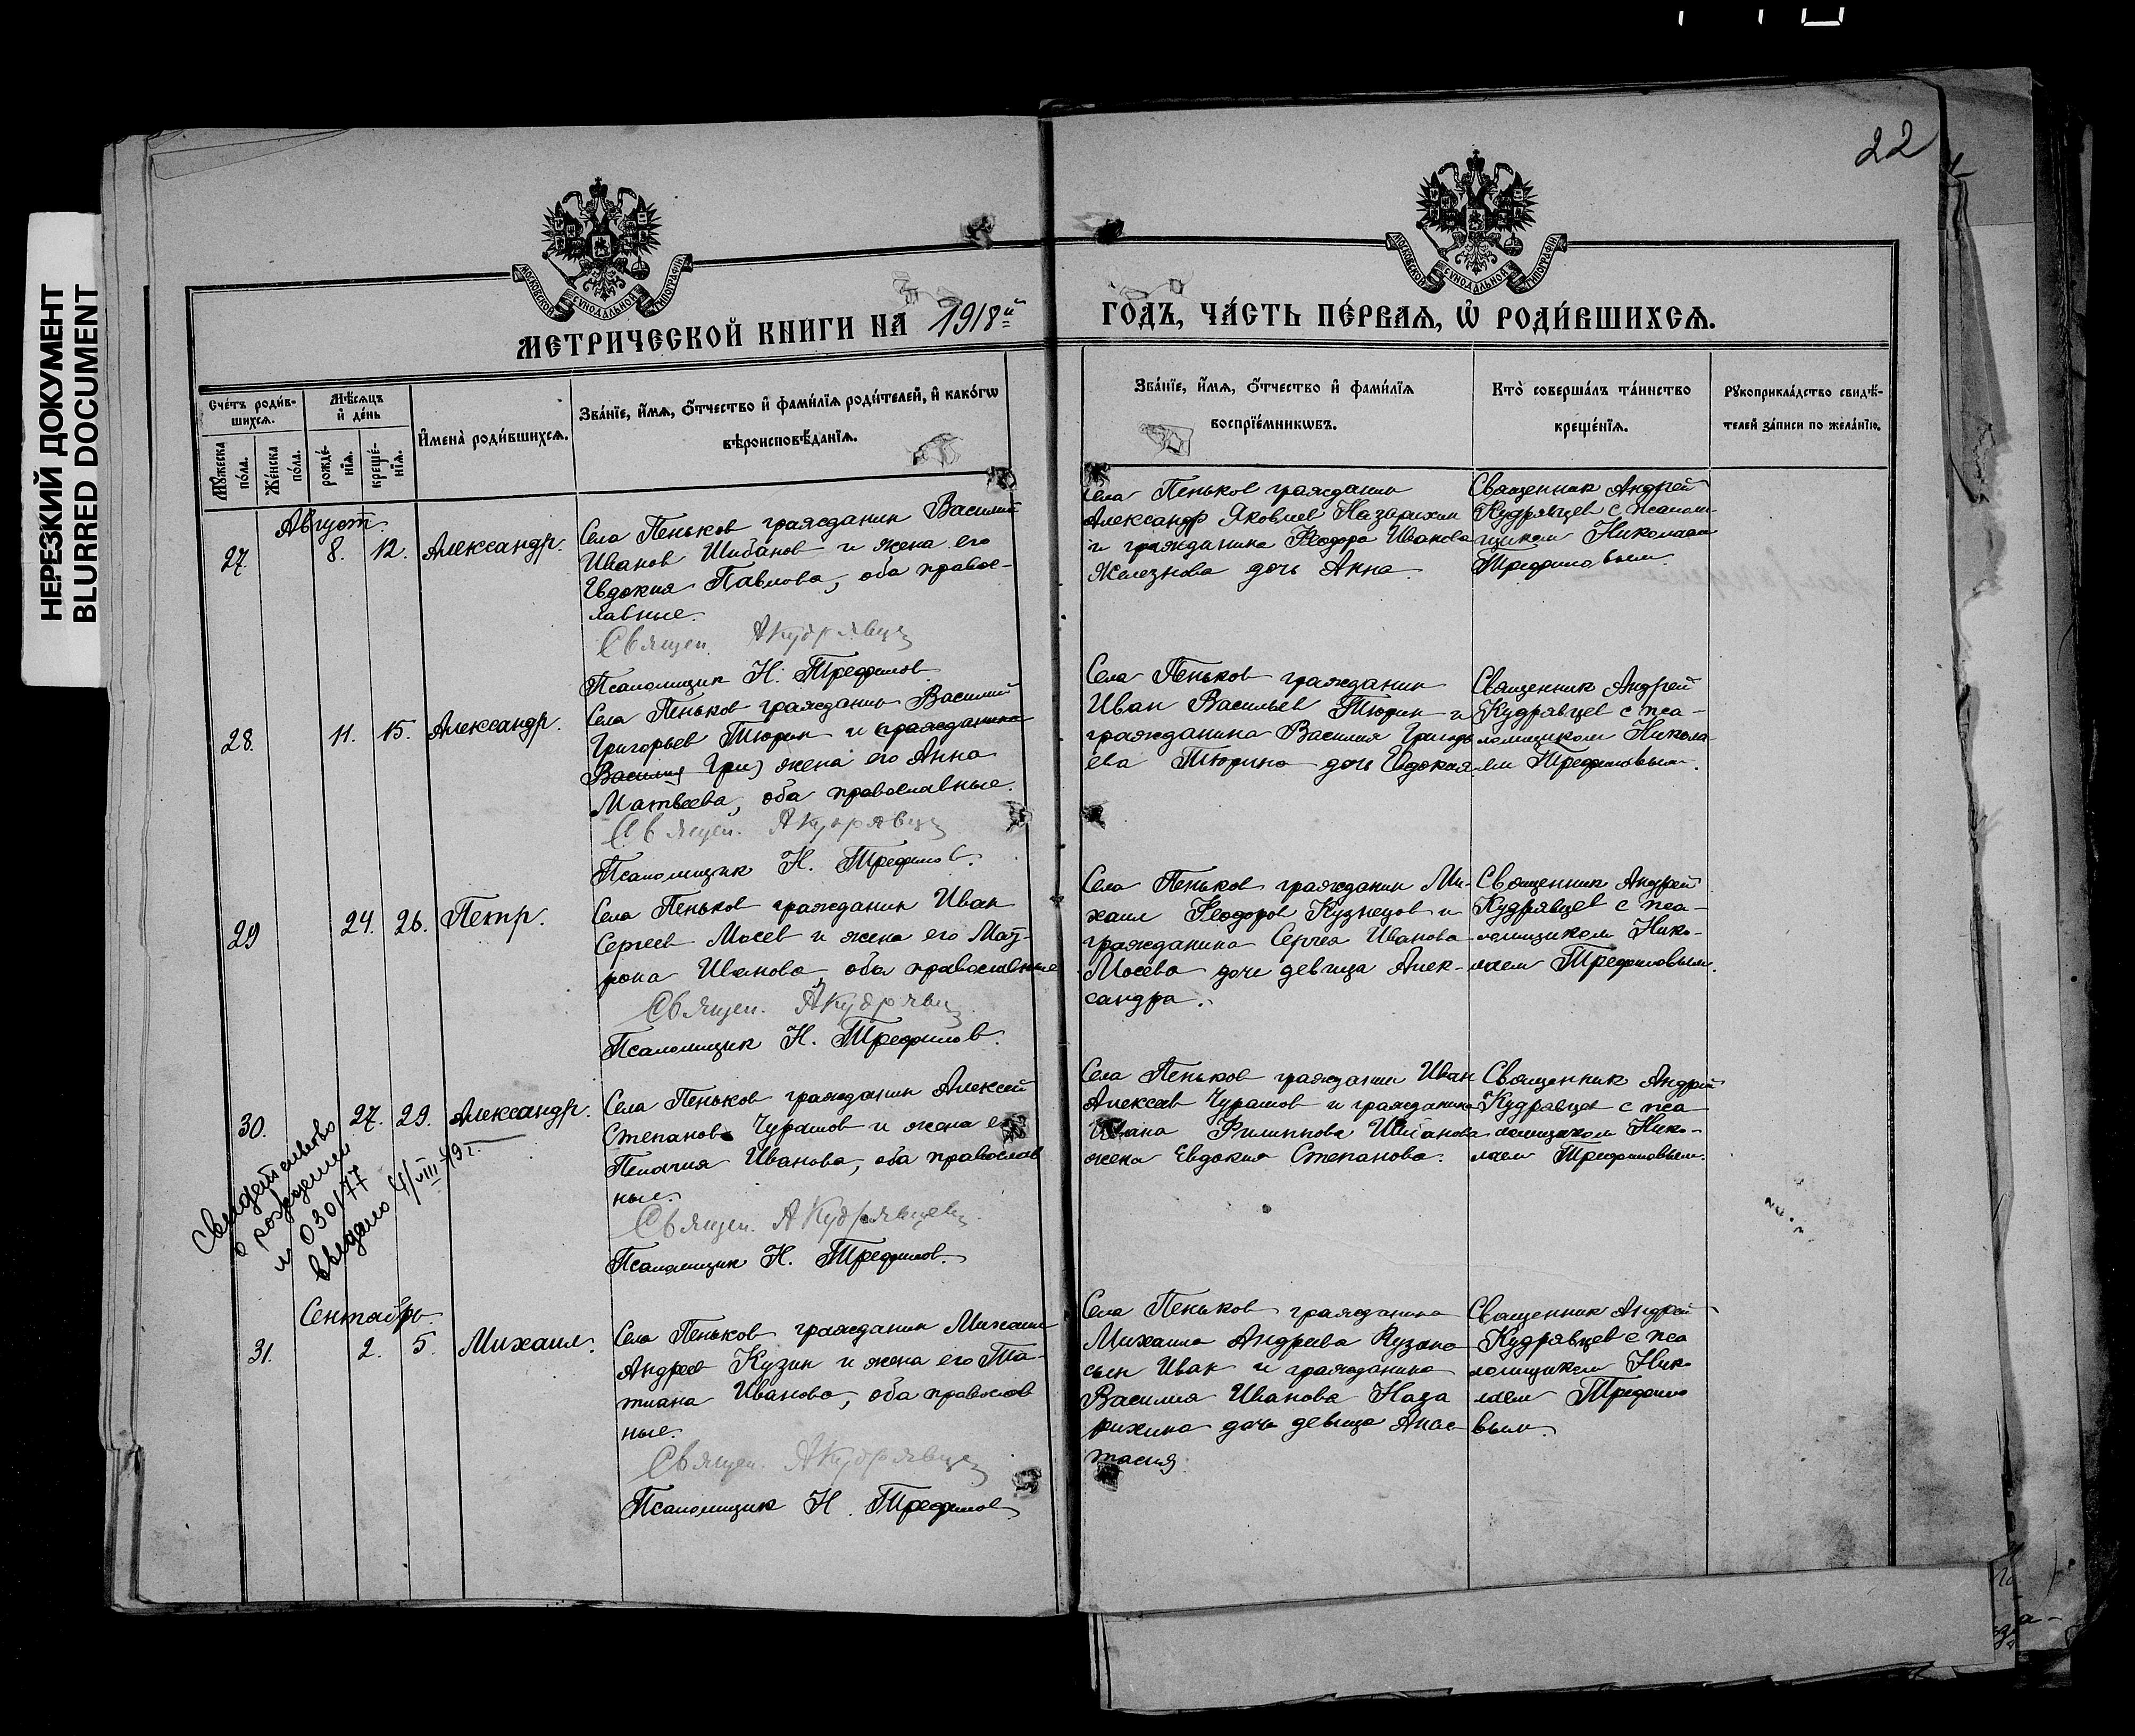 22
НЕРЕЗКИЙ ДОКУМЕНТ
BLURRED DOCUMENT
МОСКОВСКОЙ СѴНОДАЛЬНОЙ ТИПОГРАФІИ
МОСКОВСКОЙ СѴНОДАЛЬНОЙ ТИПОГРАФІИ
МЕТРИЧЕСКОЙ КНИГИ НА 1918й
ГОДЪ, ЧА́СТЬ ПЕ́РВАѦ, Ѡ҆ РОДИ́ВШИХСѦ.
Сче́тъ роди́в-
шихсѧ.
Мѣ́сѧцъ
и҆ де́нь
Мꙋ́жеска
по́ла.
Же́нска
по́ла.
рожде́-
нїѧ.
креще́-
нїѧ.
И҆мена̀ роди́вшихсѧ.
Зва́нїе, и҆́мѧ, ѻ҆́тчество и҆ фами́лїѧ роди́телей, и҆ како́гѡ
вѣроисповѣ́данїѧ.
Зва́нїе, и҆́мѧ, ѻ҆́тчество и҆ фами́лїѧ
воспрїе́мникѡвъ.
Кто̀ соверша́лъ та́инство
креще́нїѧ.
Рꙋкоприкла́дство свидѣ́-
телей за́писи по жела́нїю.
Август.
27. 8. 12. Александр.
Села Пеньков гражданин Василий
Иванов Шибанов и жена его
Евдокия Павлова, оба правос-
лавные.
Священ. А Кудрявцев
Псаломщик Н. Трефилов.
Села Пеньков гражданин
Александр Яковлев Назарихин
и гражданина Феодора Иванова
Железнова дочь Анна.
Священник Андрей
Кудрявцев с псалом-
щиком Николаем
Трефиловым.
28. 11. 15. Александр.
Села Пеньков гражданин Василий
Григорьев Тюрин и гражданина
Василия Гри) жена его Анна
Матвеева, оба православные.
Священ. А Кудрявцев
Псаломщик Н. Трефилов.
Села Пеньков гражданин
Иван Васильев Тюрин и
гражданина Василия Григорь
ева Тюрина дочь Евдокия
Священник Андрей
Кудрявцев с пса-
ломщиком Никола-
ем Трефиловым.
29 24. 26. Петр.
Села Пеньков гражданин Иван
Сергеев Мосев и жена его Мат-
рона Иванова, оба православные
Священ. А Кудрявцев
Псаломщик Н. Трефилов.
Села Пеньков гражданин Ми-
хаил Феодоров Кузнецов и
гражданина Сергея Иванова
Мосева дочь девица Алек-
сандра.
Священник Андрей
Кудрявцев с пса-
ломщиком Нико-
лаем Трефиловым.
30. 27. 29. Александр.
Села Пеньков гражданин Алексей
Степанов Чурашов и жена его
Пелагия Иванова, оба православ
ные.
Священ. А Кудрявцев
Псаломщик Н. Трефилов.
Села Пеньков гражданин Иван
Алексеев Чурашов и гражданина
Ивана Филиппова
жена Евдокия Степанова.
Священник Андрей
Кудрявцев с пса
ломщиком Нико-
лаем Трефиловым.
Свидетельство
о рождении
030177
выдано 4/VIII-49 г.
Сентябрь.
31. 2. 5. Михаил.
Села Пеньков гражданин Михаил
Андреев Кузин и жена его Та-
тиана Иванова, оба православ
ные.
Священ. А Кудрявцев
Псаломщик Н. Трефилов
Села Пеньков гражданина
Михаила Андреева Кузина
сын Иван и гражданина
Василия Иванова Наза
рихина дочь девица Анас-
тасия
Священник Андрей
Кудрявцев с пса
ломщиком Нико
лаем Трефило
вым.